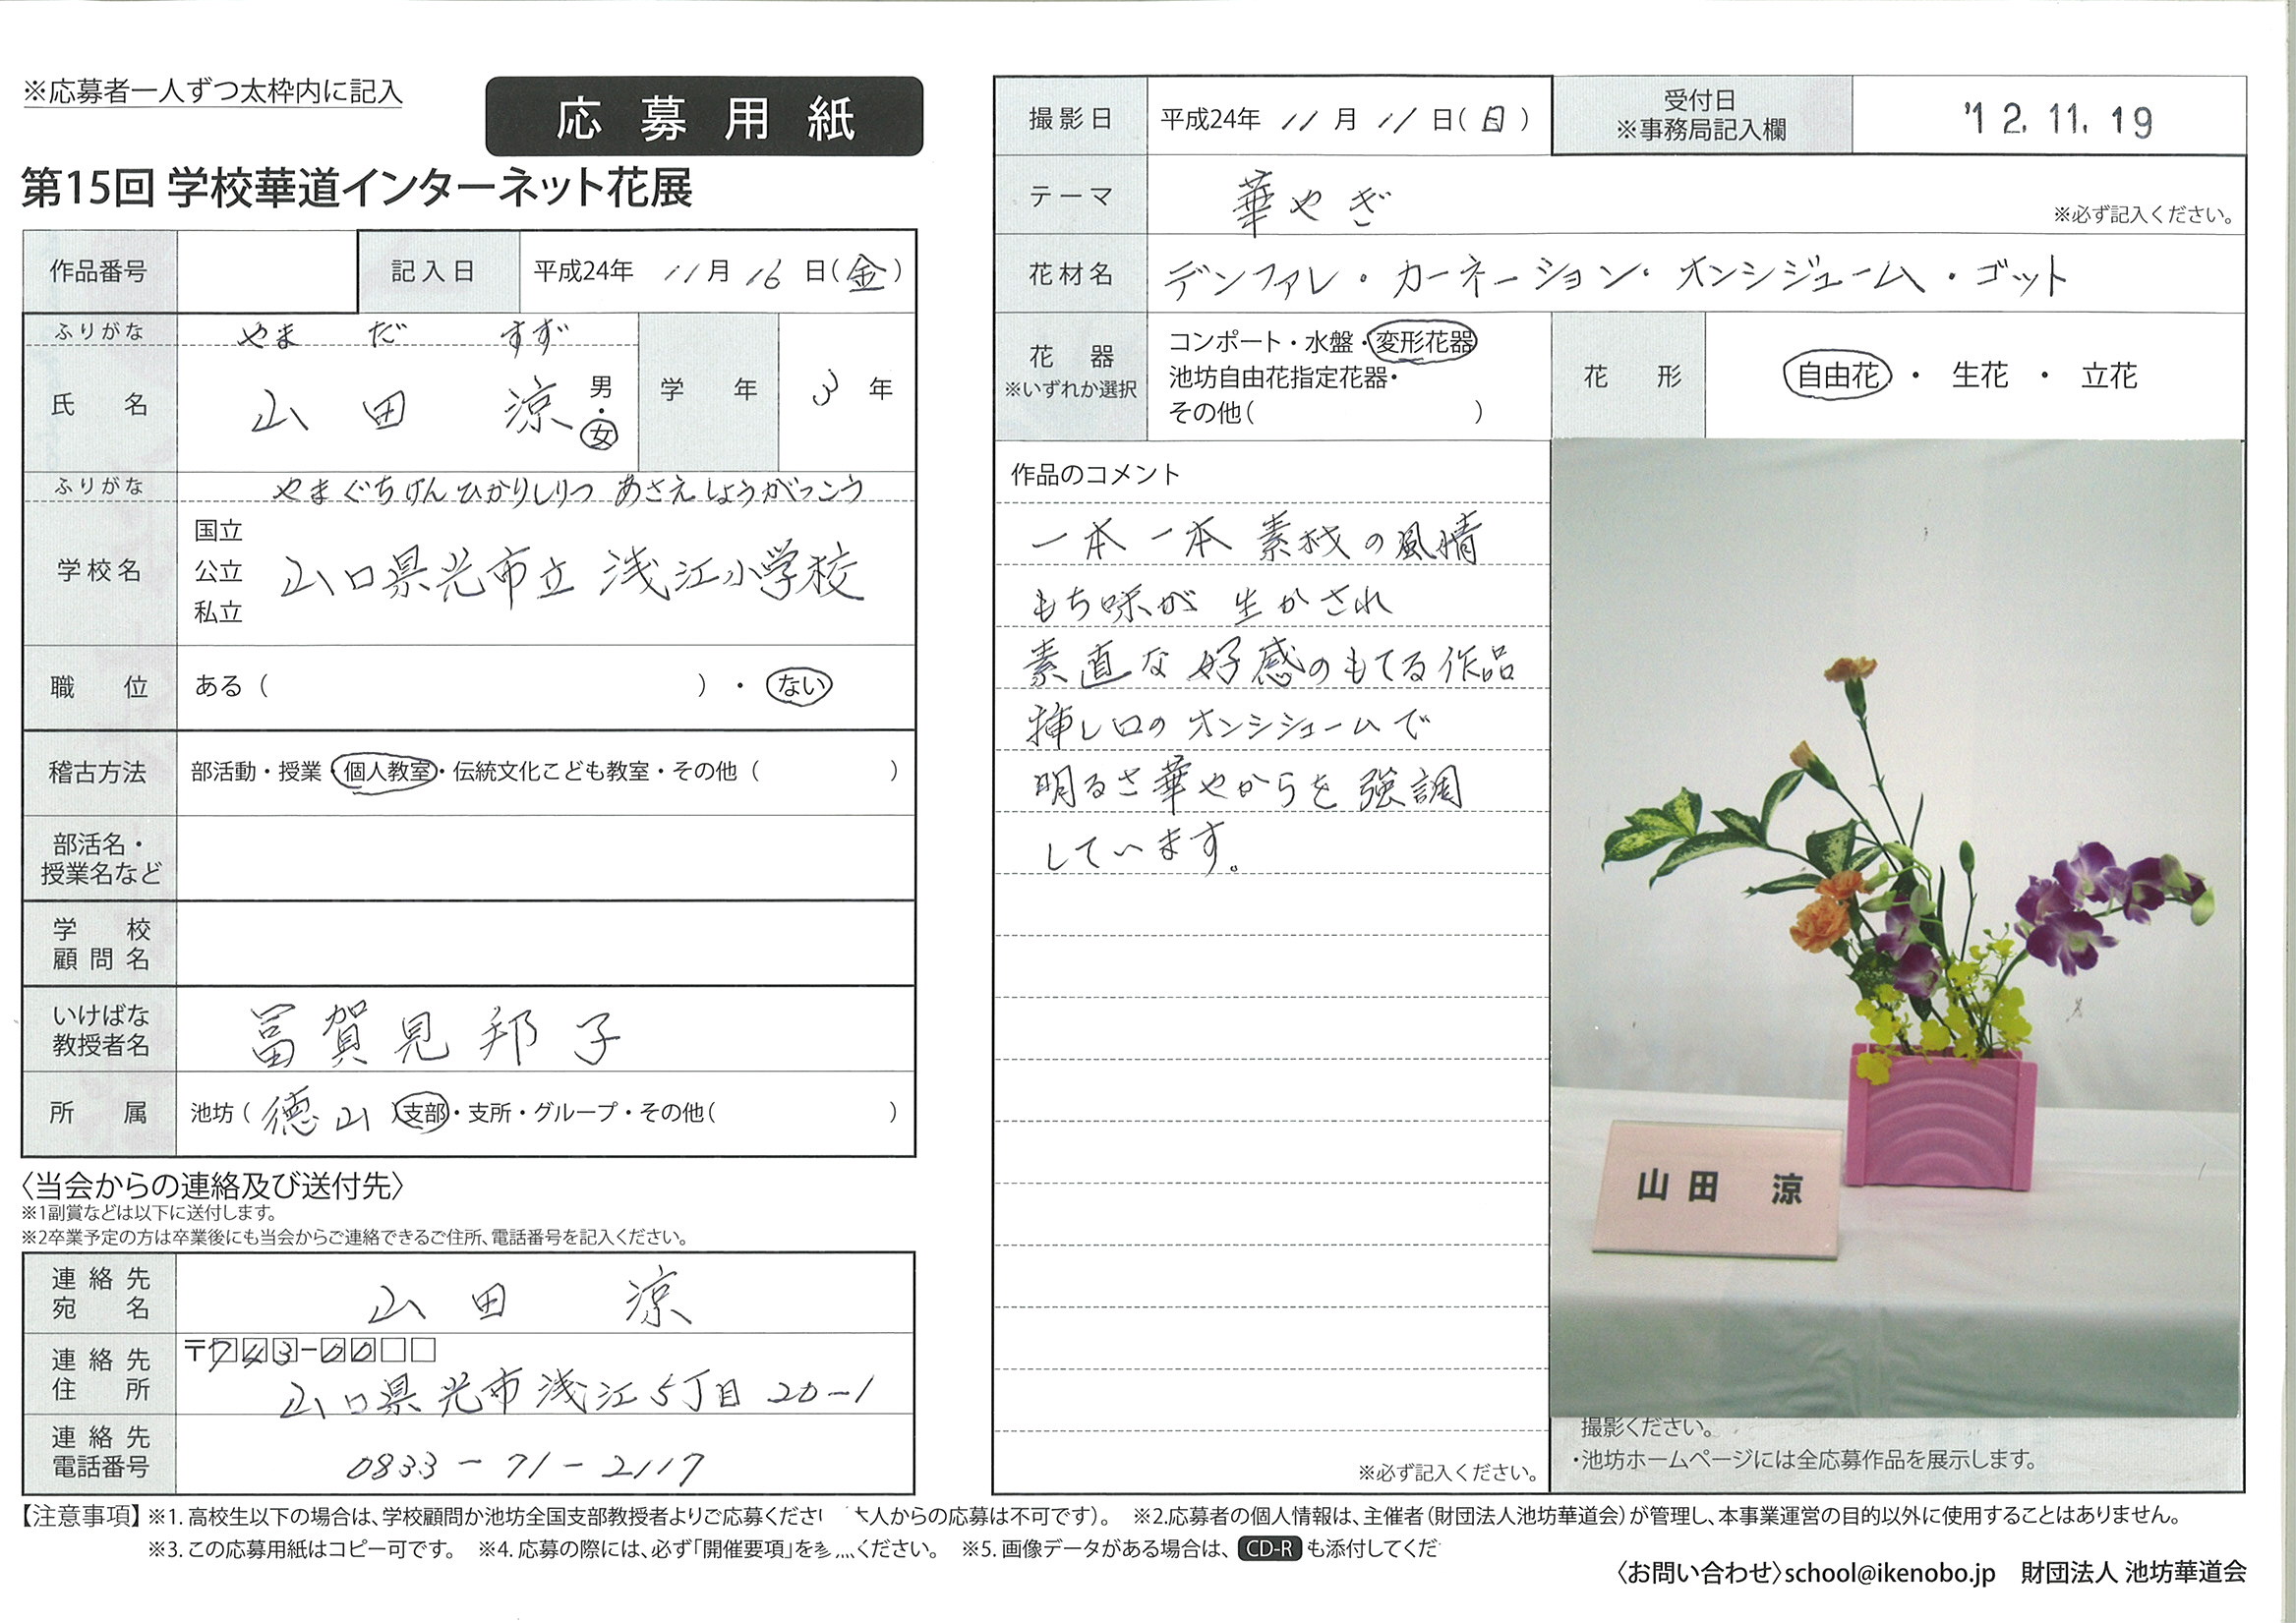 ※応募者一人ずつ太枠内に記入
応募用紙
第15回 学校華道インターネット花展
作品番号
記入日 平成24年 11月 16日(金)
ふりがな やま だ すず
氏名 山田 涼 男・女
学年 3年
ふりがな やまぐちけん ひかりしりつ あさえ しょうがっこう
学校名 国立 公立 私立 山口県光市立 浅江小学校
職位 ある( )・ない
稽古方法 部活動・授業・個人教室・伝統文化こども教室・その他( )
部活名・
授業名など
学校
顧問名
いけばな
教授者名 冨賀見邦子
所属 池坊(徳山)支部・支所・グループ・その他( )
〈当会からの連絡及び送付先〉
※1副賞などは以下に送付します。
※2卒業予定の方は卒業後にも当会からご連絡できるご住所、電話番号を記入ください。
連絡先
宛名 山田 涼
連絡先
住所 〒743-00
山口県光市浅江5丁目20-1
連絡先
電話番号 0833-71-2117
撮影日 平成24年 11月 11日(日)
受付日
※事務局記入欄 '12.11.19
テーマ 華やぎ
※必ず記入ください。
花材名 デンファレ・カーネーション・オンシジューム・ゴット
花器
※いずれか選択
コンポート・水盤・変形花器
池坊自由花指定花器・
その他( )
花形 自由花・生花・立花
作品のコメント
一本一本 素材の風情
もち味が 生かされ
素直な好感のもてる作品
挿し口のオンシシュームで
明るさ華やからを強調
しています。
※必ず記入ください。
山田 涼
撮影ください。
・池坊ホームページには全応募作品を展示します。
【注意事項】※1.高校生以下の場合は、学校顧問か池坊全国支部教授者よりご応募くださ 人からの応募は不可です)。 ※2.応募者の個人情報は、主催者(財団法人池坊華道会)が管理し、本事業運営の目的以外に使用することはありません。
※3.この応募用紙はコピー可です。 ※4.応募の際には、必ず「開催要項」を ください。 ※5.画像データがある場合は、CD-Rも添付してくだ
〈お問い合わせ〉school@ikenobo.jp 財団法人 池坊華道会